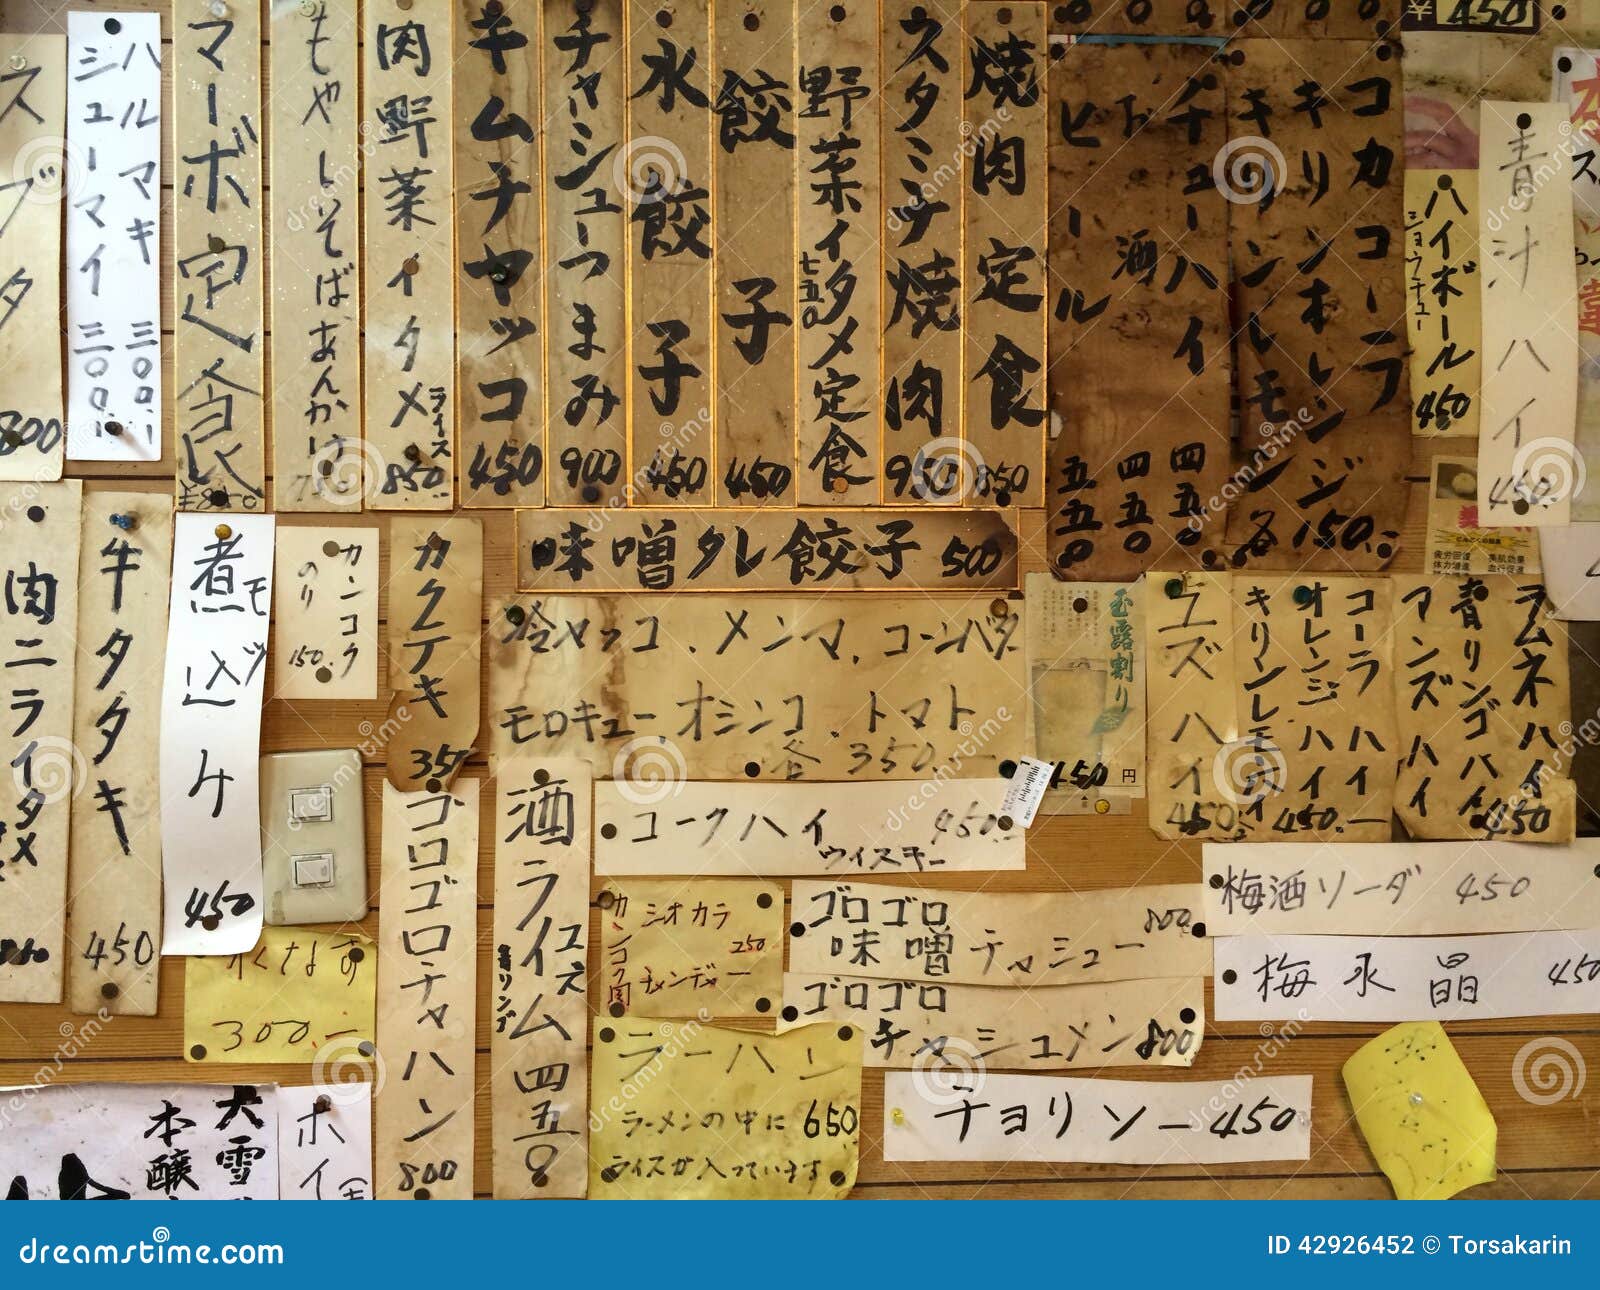 スブタ
800
ハルマキ 三〇〇.-
シューマイ 三〇〇.-
マーボ定食
¥850
もやしそばあんかけ
肉野菜イタメ
ライス
850
キムチヤッコ
450
チャシューつまみ
900
水餃子
450
餃子
450
野菜イタメ定食
七五〇
スタミナ焼肉
950
焼肉定食
850
チューハイ 四五〇
酒 四五〇
ビール 五五〇
コカコーラ
キリンオレンジ
キリンレモン
各
150.-
¥450
ハイボール
ショウチュー
450
青汁ハイ
450.
肉ニライタメ
牛タタキ
450
煮込み
モツ
450
カンコク
のり
150.
カクテキ
350
味噌タレ餃子 500
冷ヤッコ.メンマ.コーンバター
モロキュー.オシンコ.トマト
各 350.
玉露割り
450円
疲労回復
体力増進
美肌効果
血行促進
ユズハイ
450
コーラハイ
オレンジハイ
キリンレモンハイ
450.-
ラムネハイ
青リンゴハイ
アンズハイ
450
コークハイ 450.-
ウイスキー
ゴロゴロチャハン
800
酒ライム 四五〇
ユズ
青リンゴ
シオカラ
250
チャンヂャー
ゴロゴロ
味噌チャシュー 800
ゴロゴロ
チャシュメン 800
梅酒ソーダ 450
梅水晶 450
水なす
300.-
ラーハン
ラーメンの中に 650
ライスが入っています
チョリソー 450
大雪
本醸
ホイ
dreamstime.com
ID 42926452 © Torsakarin